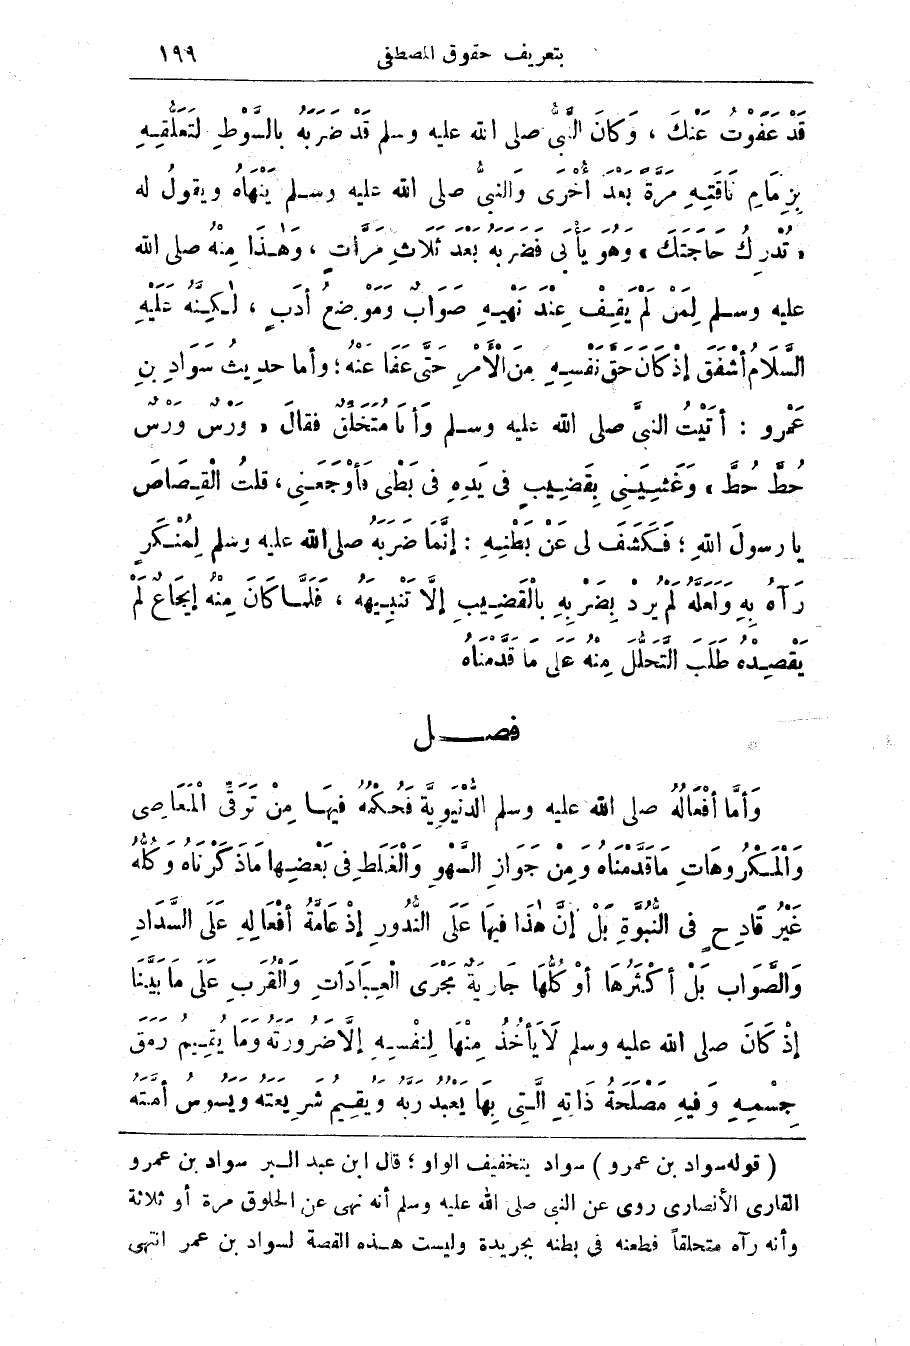 بتعريف حقوق المصطفى ١٩٩
قَدْ عَفَوْتُ عَنْكَ ، وَكَانَ النَّبىُّ صلى الله عليه وسلم قَدْ ضَرَبَهُ بِالسَّوْطِ لتَعَلُّقِهِ
بِزِمَامِ نَاقَتِهِ مَرَّةً بَعْدَ أُخْرَى وَالنبىُّ صلى الله عليه وسلم يَنْهَاهُ ويقولُ له
« تُدْرِكُ حَاجَتَكَ » وهُوَ يأْبَى فَضَرَبَهُ بَعْدَ ثَلَاثِ مَرَّاتٍ ، وَهٰذَا مِنْهُ صلى الله
عليه وسلم لِمَنْ لَمْ يَقِفْ عِنْدَ نَهْيِهِ صَوَابٌ وَمَوْضِعُ أَدَبٍ ، لٰكِنَّهُ عَلَيْهِ
السَّلَامُ أَشْفَقَ إِذْ كَانَ حَقَّ نَفْسِهِ مِنَ الْأَمْرِ حَتَّى عَفَا عَنْهُ ؛ وأما حديثُ سَوَادِ بنِ
عَمْرو : أَتَيْتُ النبىَّ صلى الله عليه وسلم وَأَنَا مُتَخَلِّقٌ فقالَ « وَرْسٌ وَرْسٌ
حُطَّ حُطَّ » وَغَشِيَنِى بِقَضِيبٍ فى يَدِهِ فى بَطْنِى فَأَوْجَعَنِى ، قلتُ الْقِصَاصَ
يا رسولَ اللهِ ؛ فَكَشَفَ لى عَنْ بَطْنِهِ : إِنَّمَا ضَرَبَهُ صلى الله عليه وسلم لِمُنْكَرٍ
رَآهُ بِهِ وَلَعَلَّهُ لَمْ يُرِدْ بِضَرْبِهِ بِالْقَضِيبِ إِلَّا تَنْبِيهَهُ ، فَلَمَّا كَانَ مِنْهُ إِيجَاعٌ لَمْ
يَقْصِدْهُ طَلَبَ التَّحَلُّلَ مِنْهُ عَلَى مَا قَدَّمْنَاهُ
فصل
وَأَمَّا أَفْعَالُهُ صلى الله عليه وسلم الدُّنْيَوِيَّةُ فَحُكْمُهُ فِيهَا مِنْ تَوَقِّى الْمَعَاصِى
وَالْمَكْرُوهَاتِ مَا قَدَّمْنَاهُ وَمِنْ جَوَازِ السَّهْوِ وَالْغَلَطِ فى بَعْضِهَا مَا ذَكَرْنَاهُ وَكُلُّهُ
غَيْرُ قَادِحٍ فى النُّبُوَّةِ بَلْ إِنَّ هٰذَا فِيهَا عَلَى النُّدُورِ إِذْ عَامَّةُ أَفْعَالِهِ عَلَى السَّدَادِ
وَالصَّوَابِ بَلْ أَكْثَرُهَا أَوْ كُلُّهَا جَارِيَةٌ مَجْرَى الْعِبَادَاتِ وَالْقُرَبِ عَلَى مَا بَيَّنَّا
إِذْ كَانَ صلى الله عليه وسلم لَا يَأْخُذُ مِنْهَا لِنَفْسِهِ إِلَّا ضَرُورَتَهُ وَمَا يُقِيمُ رَمَقَ
جِسْمِهِ وَفِيهِ مَصْلَحَةُ ذَاتِهِ الَّتِى بِهَا يَعْبُدُ رَبَّهُ وَيُقِيمُ شَرِيعَتَهُ وَيَسُوسُ أُمَّتَهُ
( قوله سواد بن عمرو ) سواد بتخفيف الواو ؛ قال ابن عبد البر سواد بن عمرو
القارى الأنصارى روى عن النبى صلى الله عليه وسلم أنه نهى عن الخلوق مرة أو ثلاثة
وأنه رآه متخلقاً فطعنه فى بطنه بجريدة وليست هذه القصة لسواد بن عمر انتهى